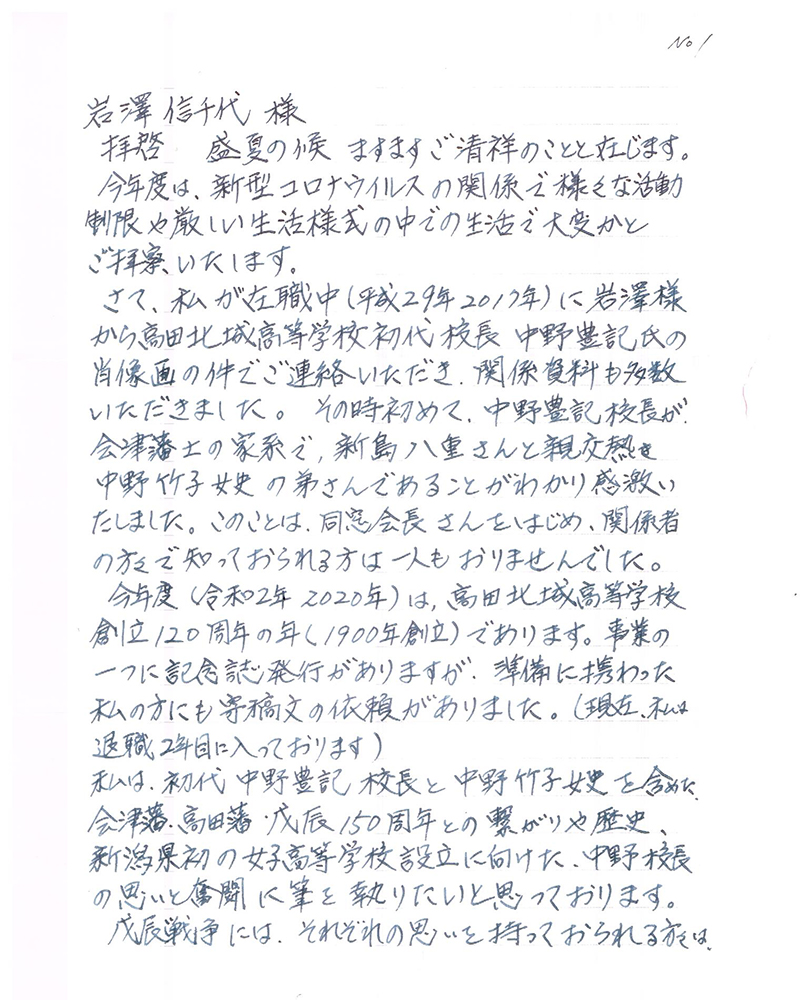 No 1
岩澤 信千代 様
拝啓 盛夏の候 ますますご清祥のことと在じます。
今年度は、新型コロナウイルスの関係で様々な活動
制限や厳しい生活様式の中での生活で大変かと
ご拝察いたします。
さて、私が在職中(平成29年2017年)に岩澤様
から高田北城高等学校初代校長 中野豊記氏の
肖像画の件でご連絡いただき、関係資料も多数
いただきました。 その時初めて、中野豊記校長が
会津藩士の家系で、新島八重さんと親交熱き
中野竹子女史の弟さんであることがわかり感激い
たしました。このことは、同窓会長さんをはじめ、関係者
の方々で知っておられる方は一人もおりませんでした。
今年度(令和2年 2020年)は、高田北城高等学校
創立120周年の年(1900年創立)であります。事業の
一つに記念誌発行がありますが、準備に携わった
私の方にも寄稿文の依頼がありました。(現在、私は
退職2年目に入っております)
私は、初代 中野豊記 校長と中野竹子女史を含めた
会津藩・高田藩・戊辰150周年との繋がりや歴史、
新潟県初の女子高等学校設立に向けた、中野校長
の思いと奮闘に筆を執りたいと思っております。
戊辰戦争には、それぞれの思いを持っておられる方々は、